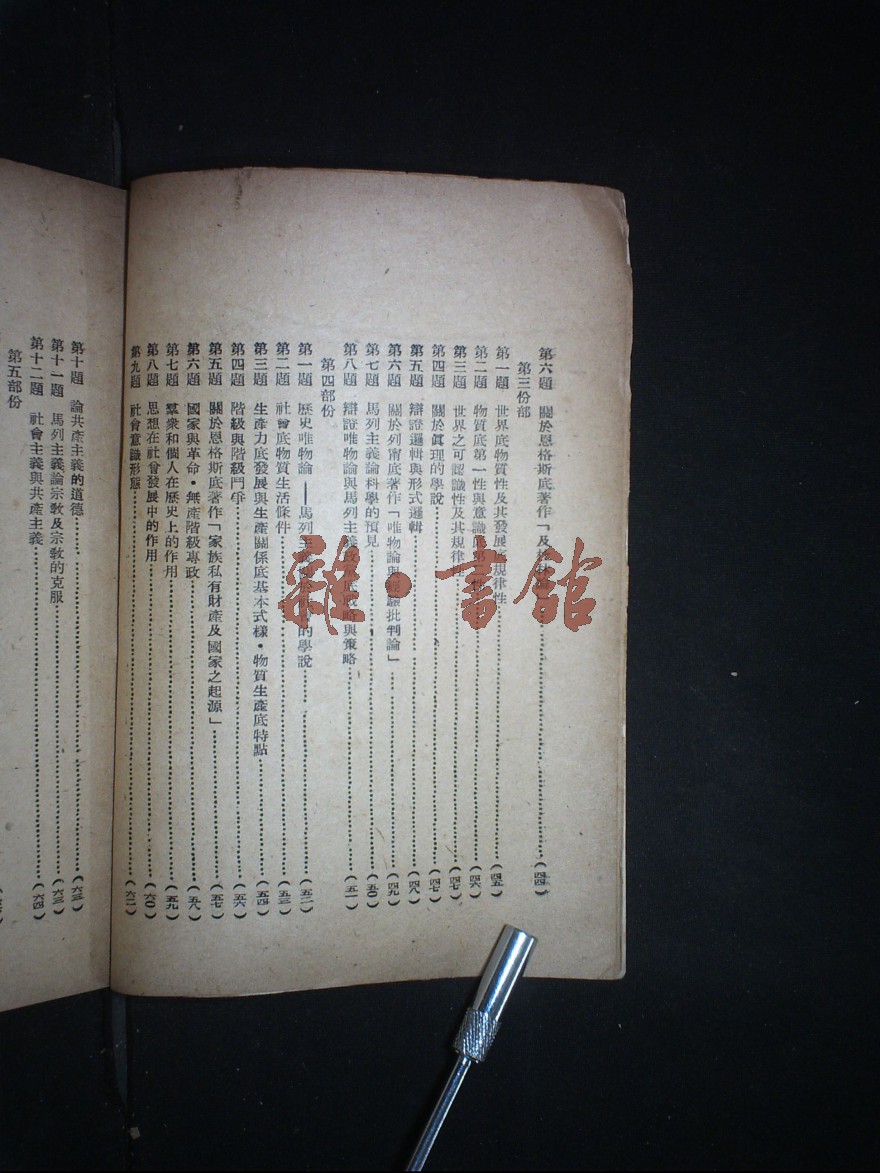 第六題 關於恩格斯底著作「及杜林論」……(四四)
第三份部
第一題 世界底物質性及其發展底規律性……(四五)
第二題 物質底第一性與意識底第二性……(四六)
第三題 世界之可認識性及其規律性……(四七)
第四題 關於眞理的學說……(四七)
第五題 辯證邏輯與形式邏輯……(四八)
第六題 關於列甯底著作「唯物論與經驗批判論」……(四九)
第七題 馬列主義論科學的預見……(五〇)
第八題 辯證唯物論與馬列主義政黨底戰略與策略……(五一)
第四部份
第一題 歷史唯物論——馬列主義關於社會的學說……(五二)
第二題 社會底物質生活條件……(五三)
第三題 生產力底發展與生產關係底基本式樣・物質生產底特點……(五四)
第四題 階級與階級鬥爭……(五六)
第五題 關於恩格斯底著作「家族私有財產及國家之起源」……(五七)
第六題 國家與革命・無產階級專政……(五八)
第七題 羣衆和個人在歷史上的作用……(五九)
第八題 思想在社會發展中的作用……(六〇)
第九題 社會意識形態……(六二)
第十題 論共產主義的道德……(六三)
第十一題 馬列主義論宗教及宗教的克服……(六三)
第十二題 社會主義與共產主義……(六四)
第五部份
雜・書館